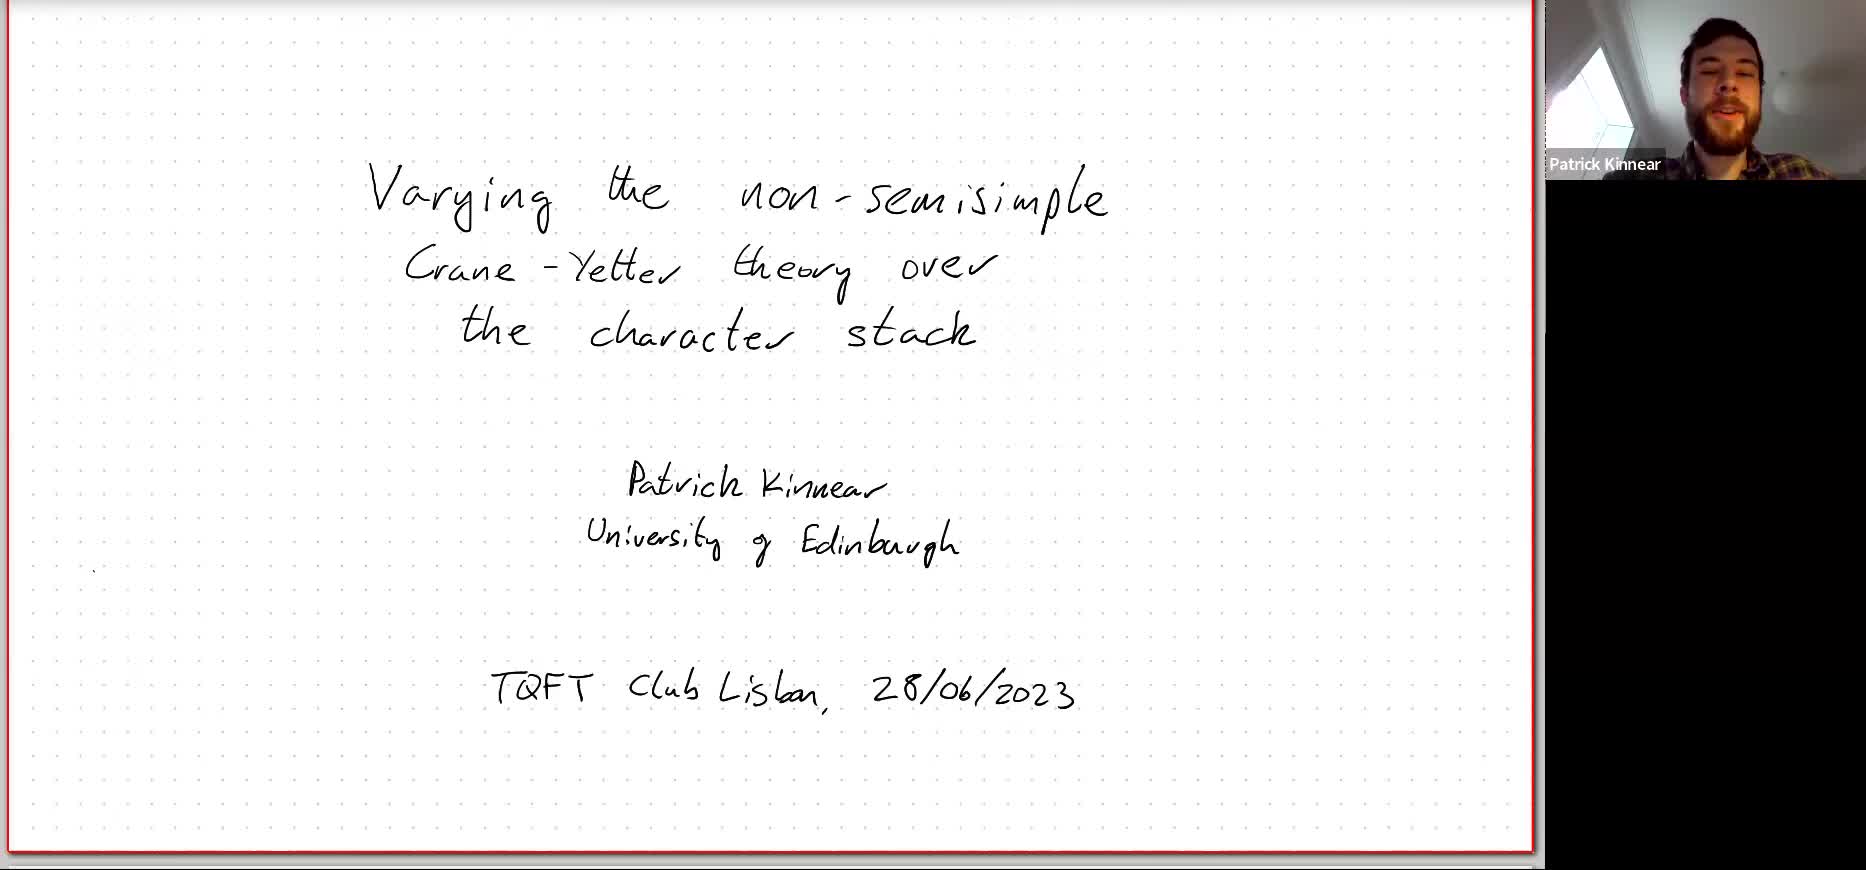 Varying the non-semisimple
Crane-Yetter theory over
the character stack
Patrick Kinnear
University of Edinburgh
TQFT Club Lisbon, 28/06/2023
Patrick Kinnear